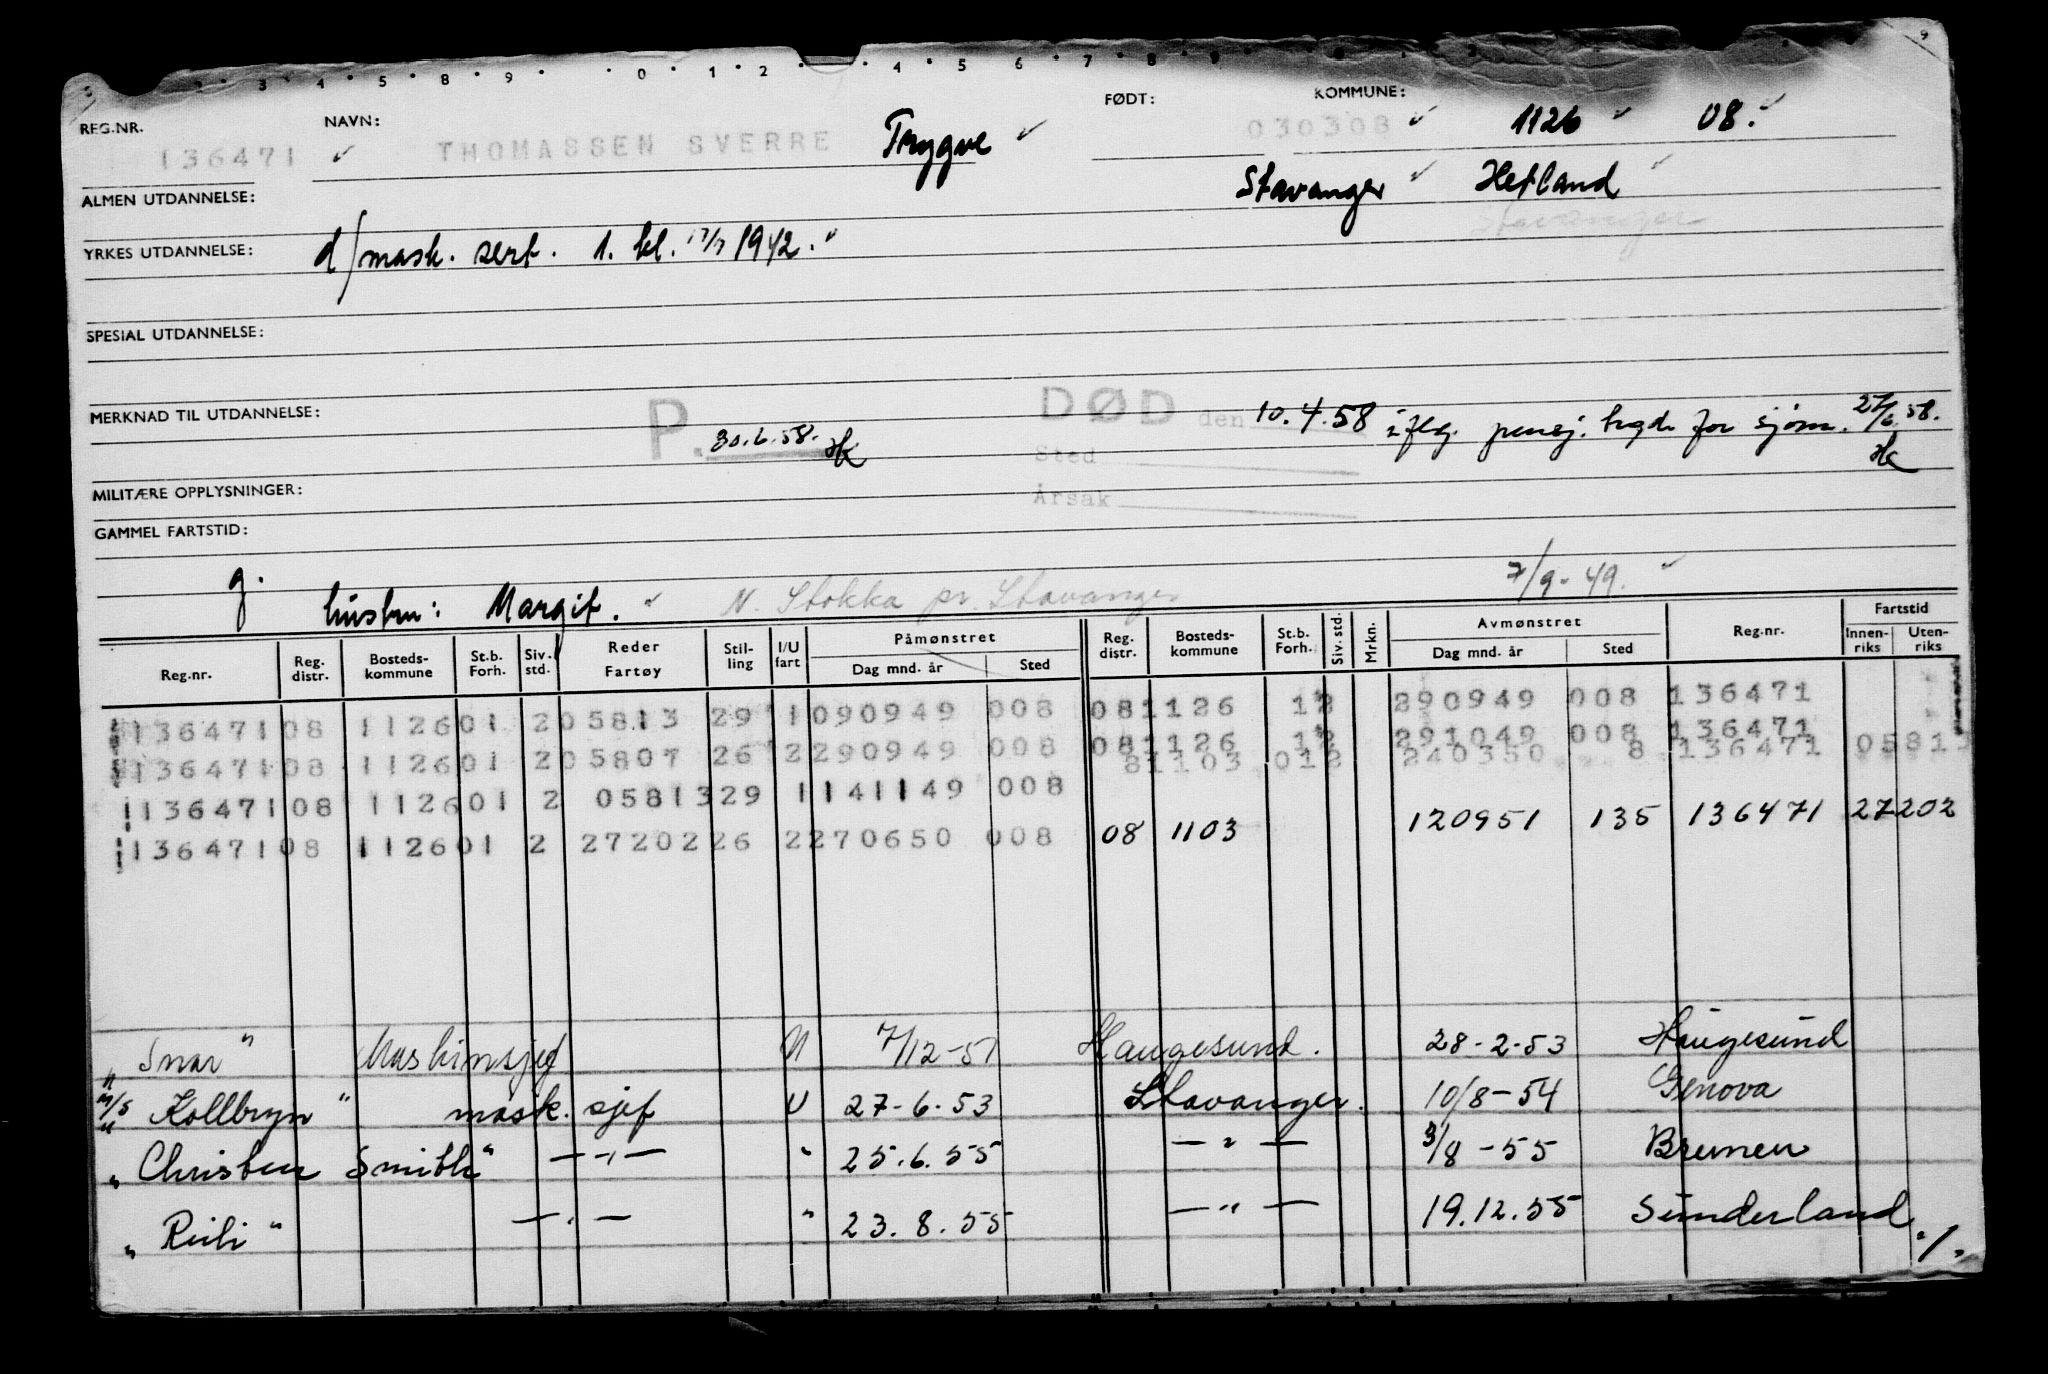 2 3 4 5 8 9 0 1 2 4 5 6 7 8 9 9
REG.NR. NAVN: FØDT: KOMMUNE:
136471 THOMASSEN SVERRE Trygve 030308 1126 08.
ALMEN UTDANNELSE: Stavanger Hetland
Stavanger
YRKES UTDANNELSE: d/mask. sert. 1. kl. 1942.
SPESIAL UTDANNELSE:
MERKNAD TIL UTDANNELSE: P. 30.6.58. HK DØD den 10.4.58 iflg. pensj. trygd. for sjøm. 27/6.58.
Sted HK
MILITÆRE OPPLYSNINGER: Årsak
GAMMEL FARTSTID:
g. hustru: Margit. N. Stokka pr. Stavanger 7/9-49.
Reg.nr. Reg. distr. Bosteds- kommune St.b. Forh. Siv. std. Reder Fartøy Stil- ling I/U fart Påmønstret Dag mnd. år Sted Reg. distr. Bosteds- kommune St.b. Forh. Siv. std. Mrkn. Avmønstret Dag mnd. år Sted Reg.nr. Fartstid Innen- riks Uten- riks
136471 08 1126 01 2 05813 29 1 090949 008 08 1126 1 2 290949 008 136471
136471 08 1126 01 2 05807 26 2 290949 008 08 1126 1 2 291049 008 136471
8 1103 01 2 240350 8 136471 05813
136471 08 1126 01 2 05813 29 1 141149 008
136471 08 1126 01 2 27202 26 2 270650 008 08 1103 120951 135 136471 27202
" Snar " Maskinsjef U 7/12-51 Haugesund. 28-2-53 Haugesund
M/S " Kollbryn " mask. sjef U 27-6.53 Stavanger. 10/8-54 Genova
" Christen Smith " —"— " 25.6.55 —"— 3/8-55 Bremen
" Rixli " —"— " 23.8.55 —"— 19.12.55 Sunderland ./.